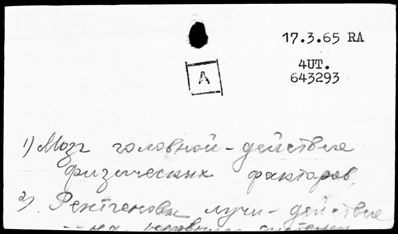 17.3.65 RA
4UT.
643293
A
1) Мозг головной - действие
физических факторов.
2). Рентгеновы лучи - действие